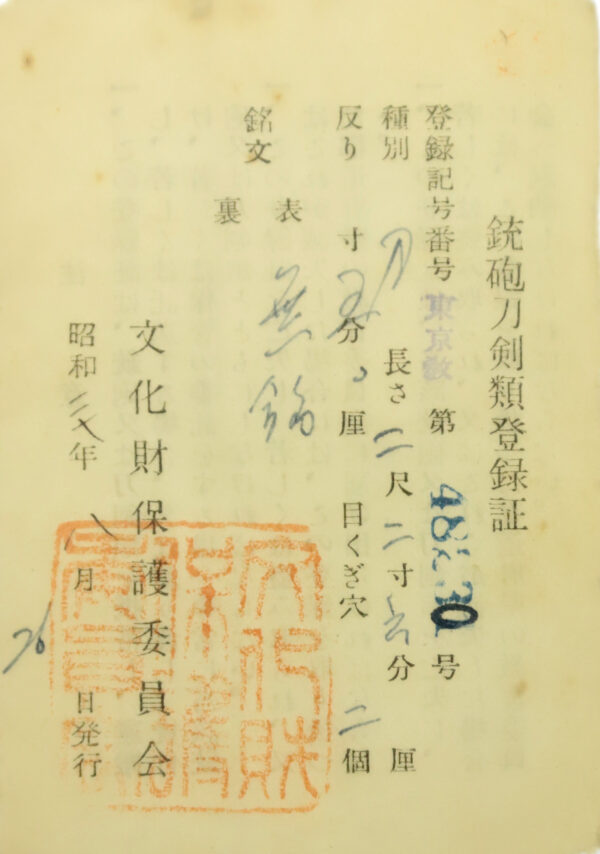 銃砲刀剣類登録証
登録記号番号 東京教 第 号
種別 刀 長さ 二尺二寸六分 厘
反り 寸五分 厘 目くぎ穴 二個
銘文 表 無銘
裏
文化財保護委員会
昭和二八年八月26日発行